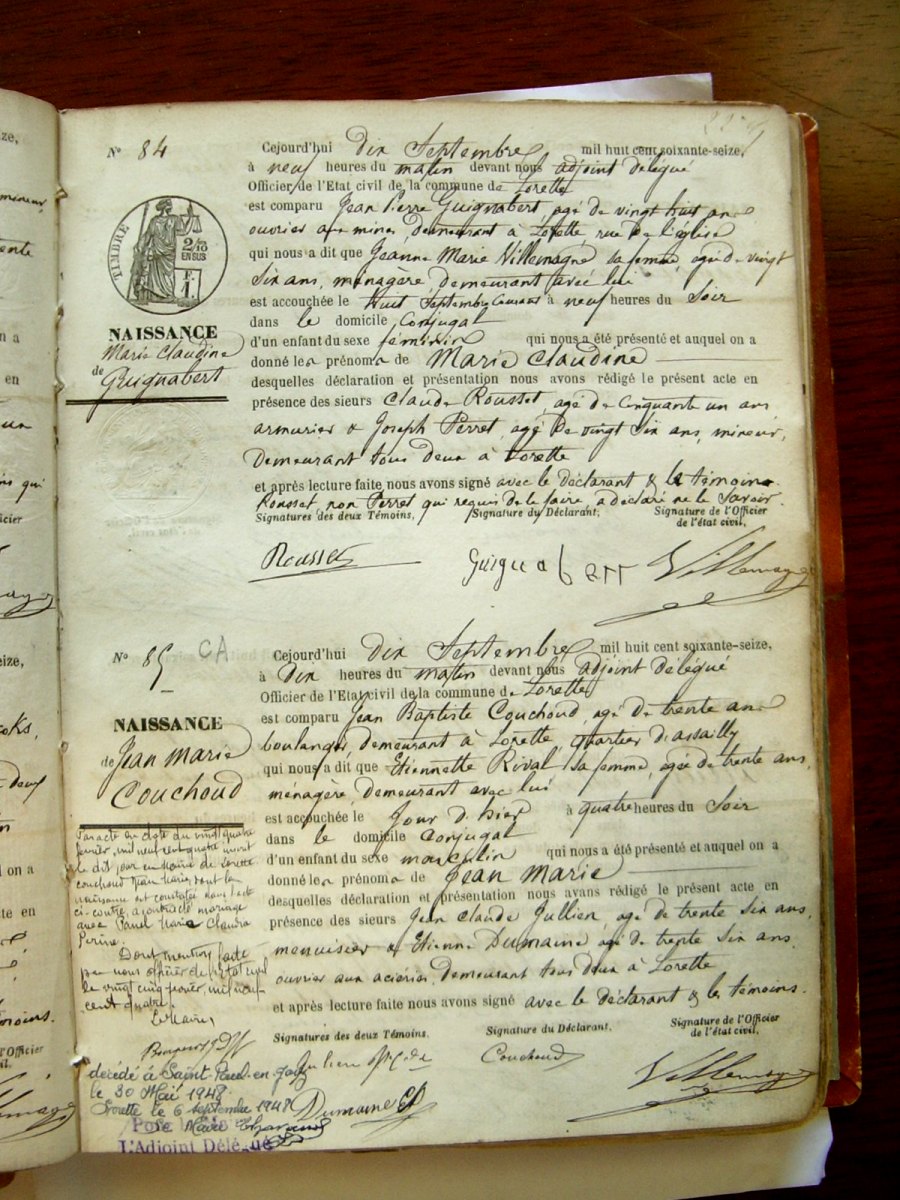 ze,
mineur,
ente
n a
en
un
ns qui
icier
eize,
Nº 84
TIMBRE
2/10
EN SUS
NAISSANCE
Marie Claudine
de
Guignabert
Cejourd'hui dix Septembre mil huit cent soixante-seize,
à neuf heures du matin devant nous adjoint délégué
Officier de l'Etat civil de la commune de Lorette
est comparu Jean Pierre Guignabert, agé de vingt huit ans
ouvrier aux mines, demeurant à Lorette rue de l'église
qui nous a dit que Jeanne Marie Villemagne sa femme, agée de vingt
six ans, ménagère, demeurant avec lui
est accouchée le huit Septembre Courant à neuf heures du Soir
dans le domicile Conjugal
d'un enfant du sexe féminin qui nous a été présenté et auquel on a
donné les prénoms de Marie Claudine
desquelles déclaration et présentation nous avons rédigé le présent acte en
présence des sieurs Claude Rousset, agé de Cinquante un ans
armurier & Joseph Perret, agé de vingt six ans, mineur,
Demeurant tous deux à Lorette
et après lecture faite nous avons signé avec le déclarant & le témoin
Rousset, non Perret qui requis de le faire, a déclaré ne le Savoir.
Signatures des deux Témoins. Signature du Déclarant. Signature de l'Officier
de l'état civil.
Rousset Guignabert Villemagne
Nº 85 CA
NAISSANCE
de Jean Marie
Couchoud
Cejourd'hui dix Septembre mil huit cent soixante-seize,
à Dix heures du matin devant nous adjoint délégué
Officier de l'Etat civil de la commune de Lorette
est comparu Jean Baptiste Couchoud, agé de trente ans
boulanger, demeurant à Lorette quartier d'assailly
qui nous a dit que Etiennette Rival sa femme, agée de trente ans,
menagère, demeurant avec lui
est accouchée le Jour d'hier à quatre heures du Soir
dans le domicile Conjugal
d'un enfant du sexe masculin qui nous a été présenté et auquel on a
donné les prénoms de Jean Marie
desquelles déclaration et présentation nous avons rédigé le présent acte en
présence des sieurs Jean Claude Jullien, agé de trente six ans,
menuisier & Etienne Dumaine agé de trente six ans.
ouvrier aux aciéries, demeurant tous deux à Lorette
et après lecture faite nous avons signé avec le déclarant & les témoins.
Signatures des deux Témoins. Signature du Déclarant. Signature de l'Officier
de l'état civil.
Couchoud
Villemagne
Dumaine
Par acte en date du vingt quatre
février, mil neuf cent quatre inscrit
le dit jour en Mairie de Lorette
couchoud Jean Marie dont la
naissance est constatée dans l'acte
ci-contre, a contracté mariage
avec Marie Claudia
Perine.
Dont mention faite
par nous officier de l'état civil
le vingt cinq février, mil neuf
cent quatre.
Le Maire
décédé à Saint Paul-en-Jarez
le 30 Mai 1948
Lorette le 6 septembre 1948
Le Maire
L'Adjoint Délégué